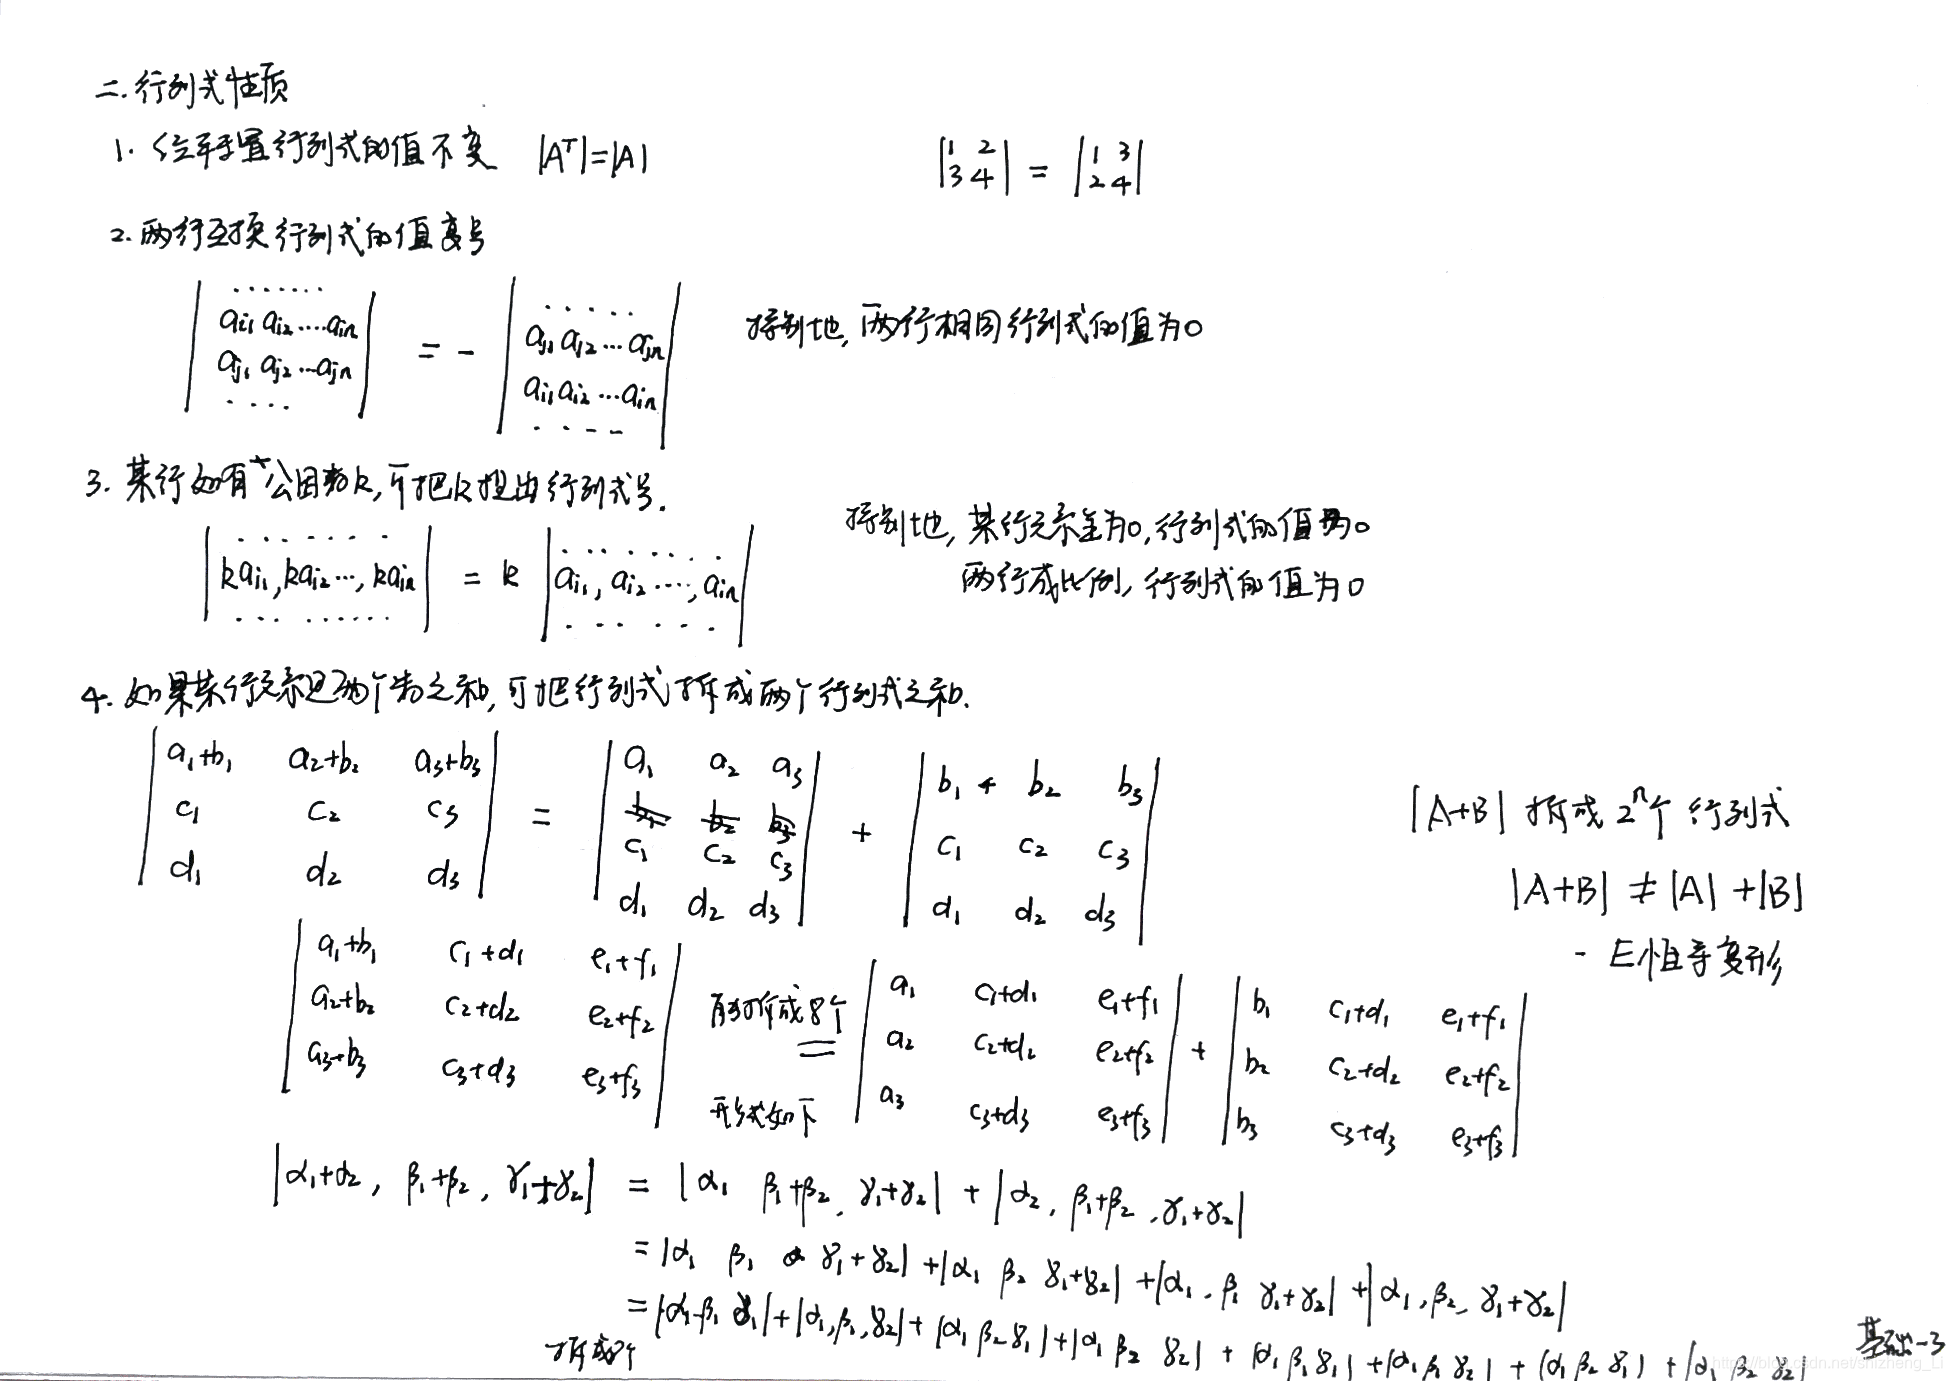 二. 行列式性质
1. 经转置行列式的值不变 |Aᵀ|=|A| |1 2; 3 4| = |1 3; 2 4|
2. 两行互换行列式的值变号
|...... ; aᵢ₁ aᵢ₂ .... aᵢₙ ; aⱼ₁ aⱼ₂ ... aⱼₙ ; ....| = - |..... ; aⱼ₁ aⱼ₂ ... aⱼₙ ; aᵢ₁ aᵢ₂ ... aᵢₙ ; ....| 特别地, 两行相同行列式的值为0
3. 某行如有公因数k, 可把k提出行列式号.
|...... ; kaᵢ₁, kaᵢ₂ ..., kaᵢₙ ; ......| = k |...... ; aᵢ₁, aᵢ₂ ...., aᵢₙ ; ......|
特别地, 某行元素全为0, 行列式的值为0
两行成比例, 行列式的值为0
4. 如果某行元素是两个数之和, 可把行列式拆成两个行列式之和.
|a₁+b₁ a₂+b₂ a₃+b₃ ; c₁ c₂ c₃ ; d₁ d₂ d₃| = |a₁ a₂ a₃ ; c₁ c₂ c₃ ; d₁ d₂ d₃| + |b₁ b₂ b₃ ; c₁ c₂ c₃ ; d₁ d₂ d₃|
|A+B| 拆成 2ⁿ个 行列式
|A+B| ≠ |A|+|B|
- E恒等变形
|a₁+b₁ c₁+d₁ e₁+f₁ ; a₂+b₂ c₂+d₂ e₂+f₂ ; a₃+b₃ c₃+d₃ e₃+f₃| 拆成8个 = 形式如下 |a₁ c₁+d₁ e₁+f₁ ; a₂ c₂+d₂ e₂+f₂ ; a₃ c₃+d₃ e₃+f₃| + |b₁ c₁+d₁ e₁+f₁ ; b₂ c₂+d₂ e₂+f₂ ; b₃ c₃+d₃ e₃+f₃|
|α₁+α₂, β₁+β₂, γ₁+γ₂| = |α₁ β₁+β₂, γ₁+γ₂| + |α₂, β₁+β₂, γ₁+γ₂|
= |α₁ β₁ γ₁+γ₂| + |α₁ β₂ γ₁+γ₂| + |α₁, β₁ γ₁+γ₂| + |α₁, β₂, γ₁+γ₂|
= |α₁ β₁ γ₁| + |α₁, β₁, γ₂| + |α₁ β₂ γ₁| + |α₁ β₂ γ₂| + |α₁ β₁ γ₁| + |α₁ β₁ γ₂| + |α₁ β₂ γ₁| + |α₁ β₂ γ₂|
基础-3
https://blog.csdn.net/shizheng_Li